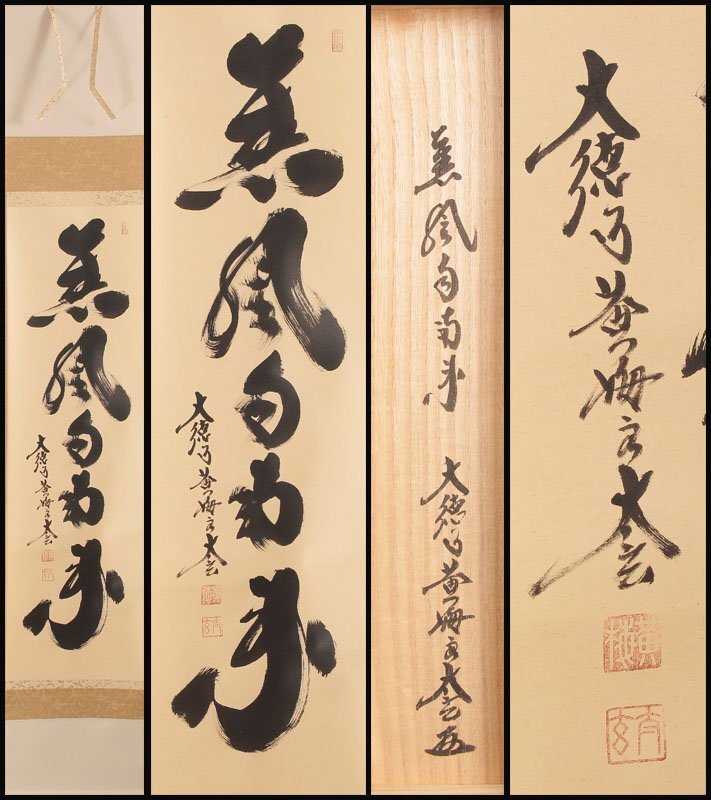 薫風自南来
大徳寺黄梅院太玄
薫風自南来
大徳寺黄梅院太玄
薫風自南来 大徳寺黄梅院太玄
大徳寺黄梅院太玄